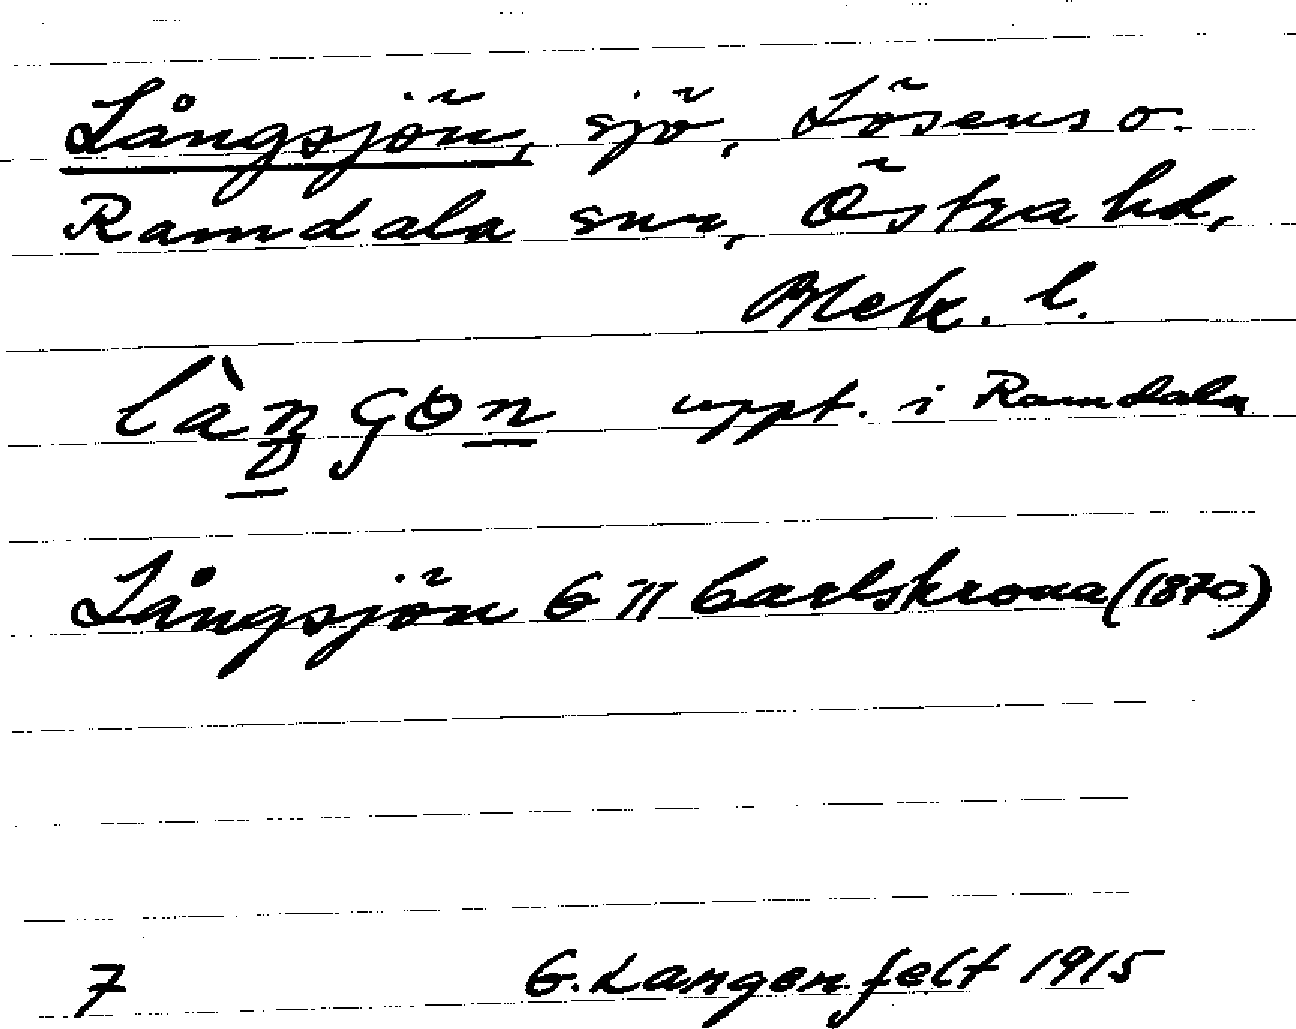 Långsjön, sjö, Lösens o.
Ramdala snr, Östra hd,
Blek. l.
uppt. i Ramdala
Långsjön G II Carlskrona (1870)
7 G. Langenfelt 1915